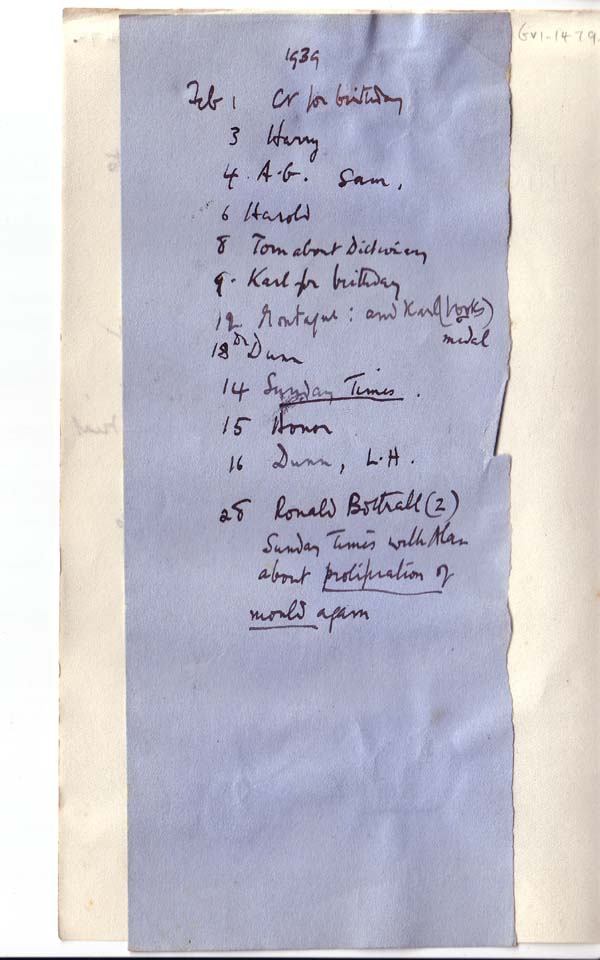 GV1-1479.
1939
Feb 1 Cr for birthday
3 Harry
4. A.G. Sam.
6 Harold
8 Tom about Dictionary
9. Karl for birthday
12 Montague: and Karl (works)
medal
13 Dr Dunn
14 Sunday Times.
15 Honor
16 Dunn, L.H.
28 Ronald Bottrall (2)
Sunday Times with Alan
about proliferation of
mould again